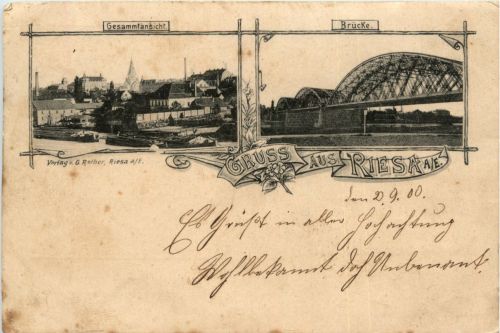 Gesammtansicht.
Brücke.
Verlag v. G. Rother, Riesa a/E.
GRUSS AUS RIESA A/E.
den 2.9.00.
Es Grüßt in aller Hochachtung
Wohlbekannt doch Unbenant.